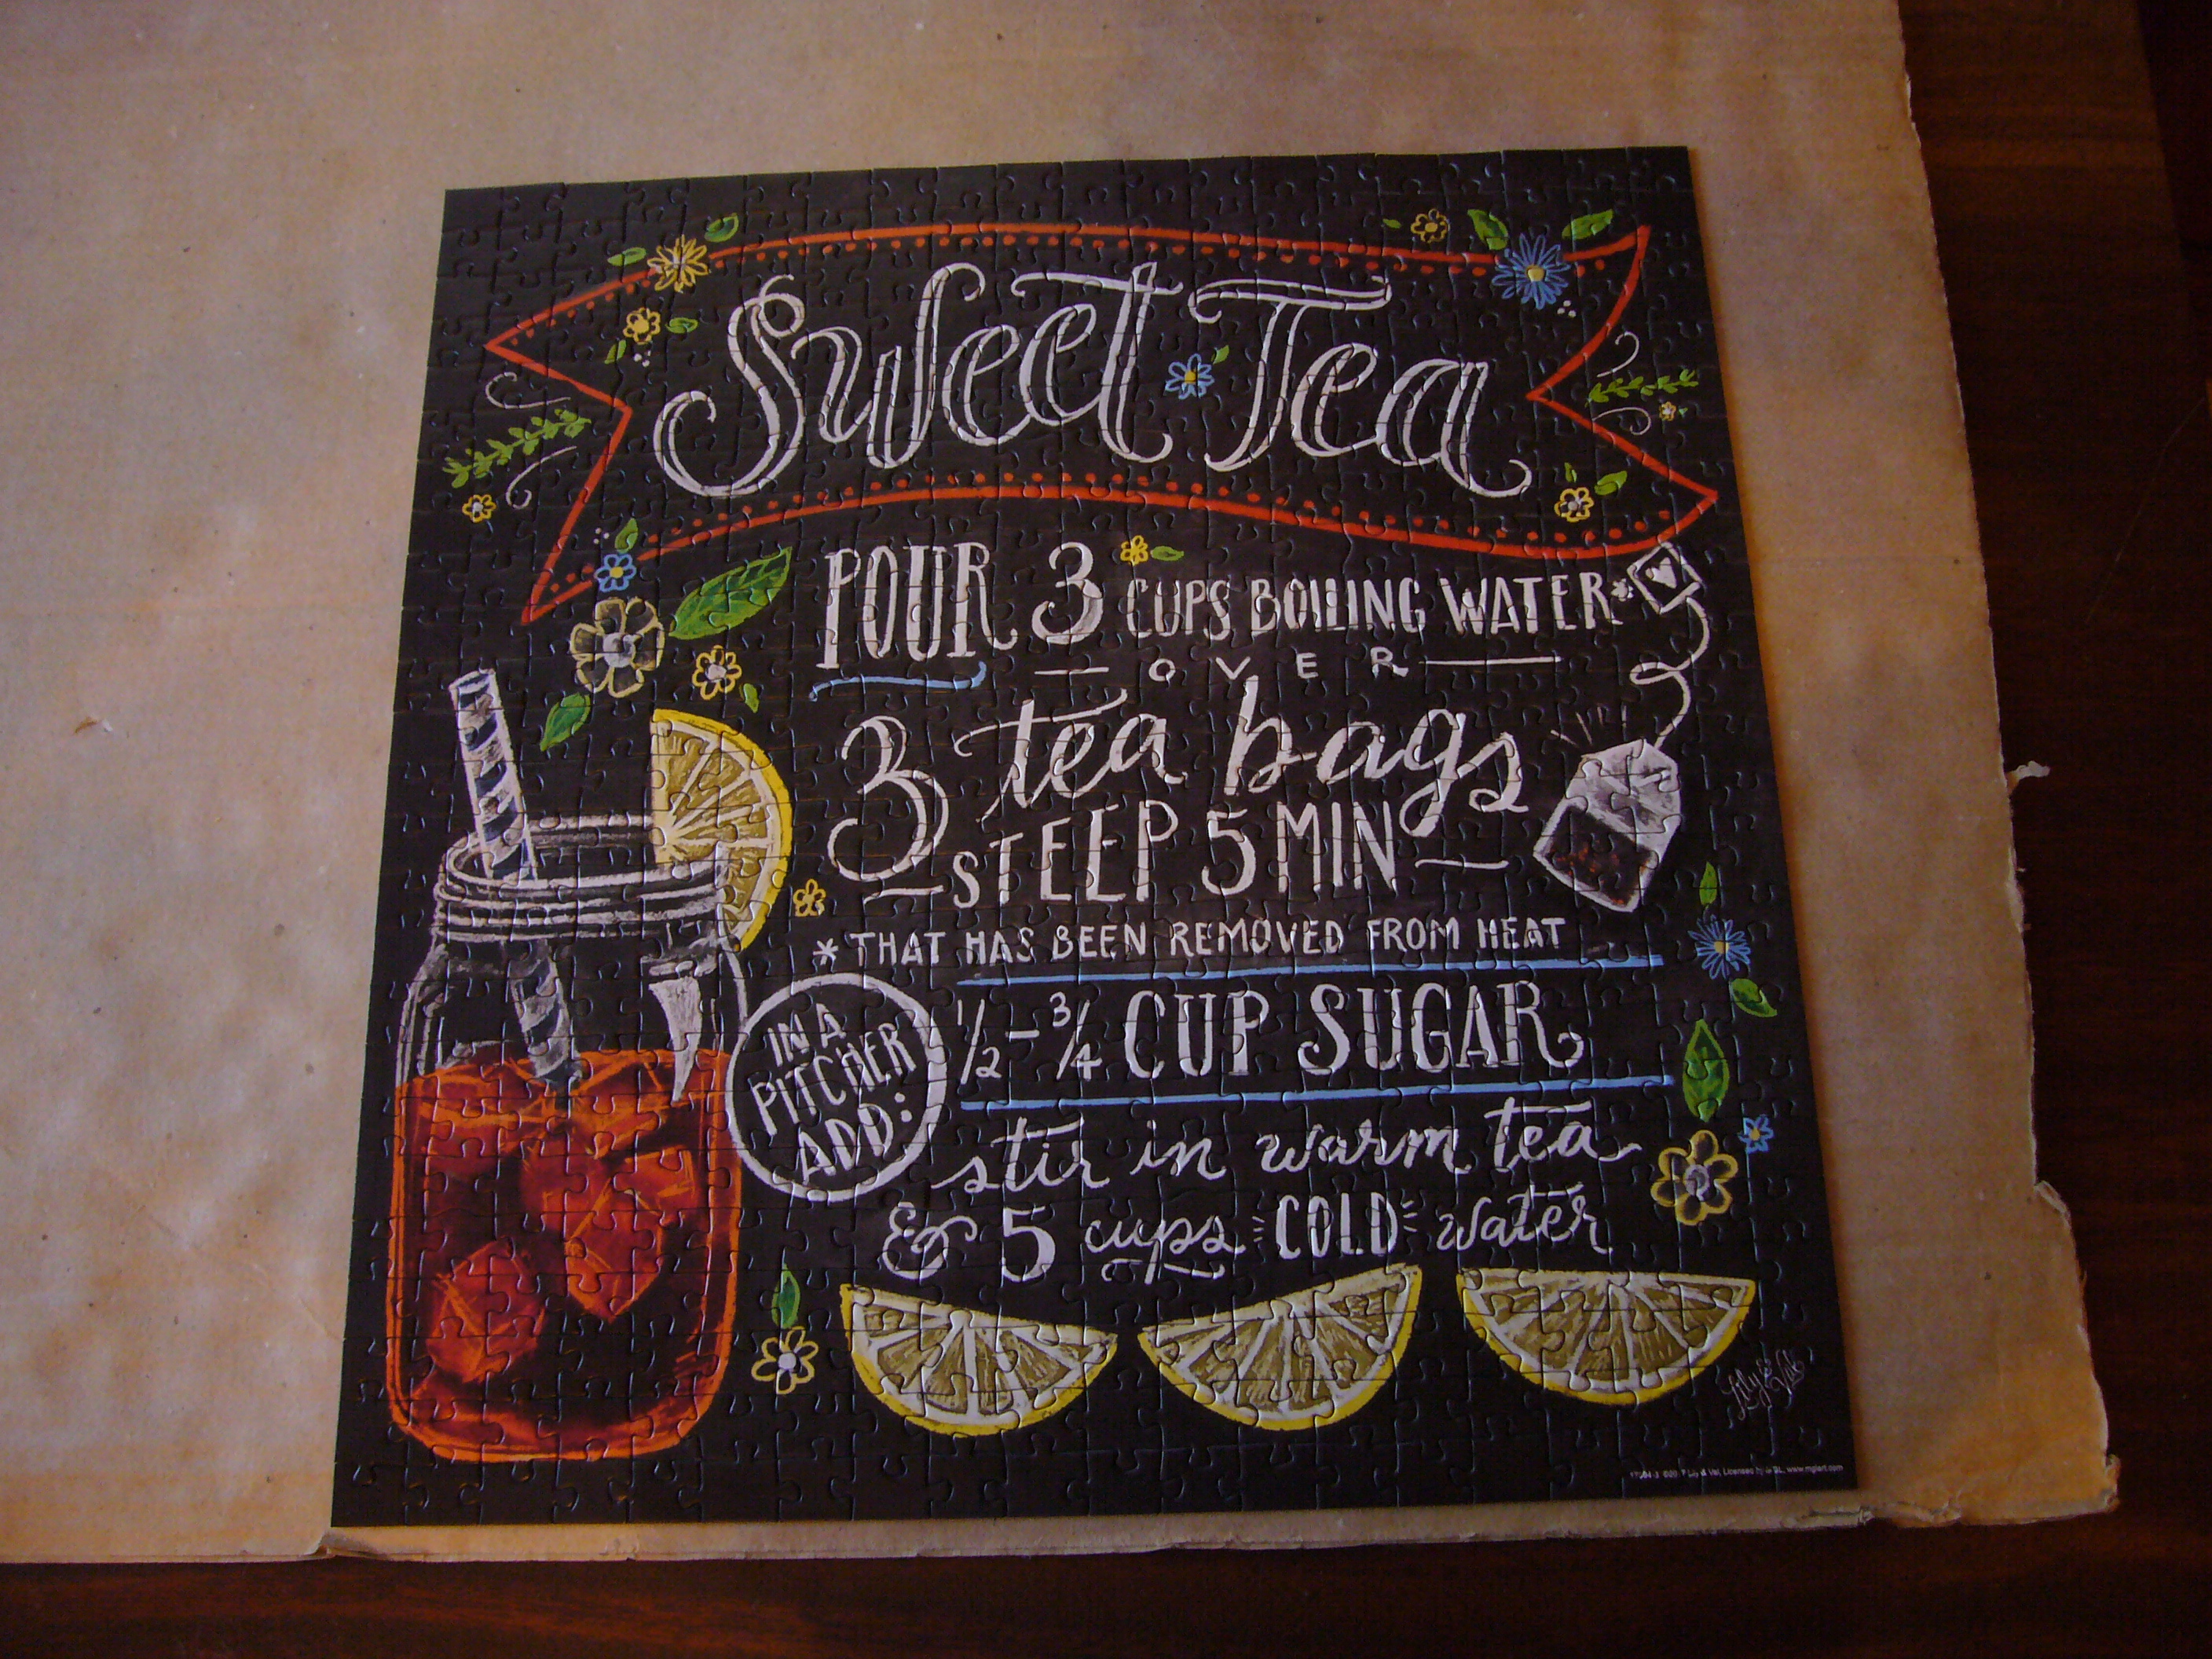 Sweet Tea
POUR 3 CUPS BOILING WATER*
OVER
3 tea bags
STEEP 5 MIN
*THAT HAS BEEN REMOVED FROM HEAT
IN A
PITCHER
ADD:
1/2 - 3/4 CUP SUGAR
stir in warm tea
& 5 cups COLD water
Lily & Val
Lily & Val, Licensed by www.mglart.com